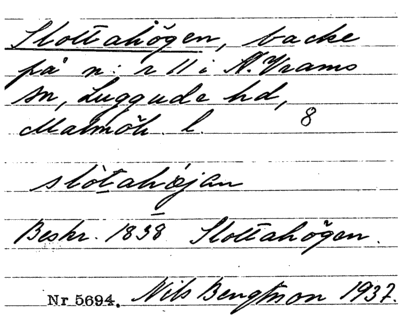 Slottahögen, backe
på n: r 11 i N. Vrams
sn, Luggude hd,
Malmöh. l. 8
slòtahøjan
Beskr. 1838 Slottahögen.
Nr 5694. Nils Bengtson 1937.